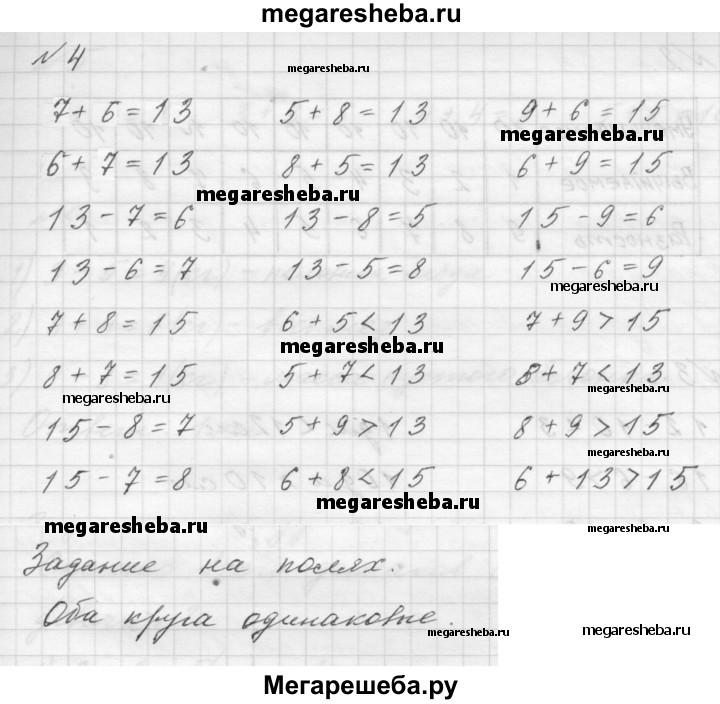 megaresheba.ru
№ 4
megaresheba.ru
7 + 6 = 13 5 + 8 = 13 9 + 6 = 15
megaresheba.ru
6 + 7 = 13 8 + 5 = 13 6 + 9 = 15
megaresheba.ru
13 - 7 = 6 13 - 8 = 5 15 - 9 = 6
13 - 6 = 7 13 - 5 = 8 15 - 6 = 9
megaresheba.ru
7 + 8 = 15 6 + 5 < 13 7 + 9 > 15
megaresheba.ru
8 + 7 = 15 5 + 7 < 13 5 + 7 < 13
megaresheba.ru megaresheba.ru
15 - 8 = 7 5 + 9 > 13 8 + 9 > 15
megaresheba.ru
15 - 7 = 8 6 + 8 < 15 6 + 13 > 15
megaresheba.ru
megaresheba.ru megaresheba.ru
Задание на полях.
Оба круга одинаковые.
megaresheba.ru megaresheba.ru
Мегарешеба.ру